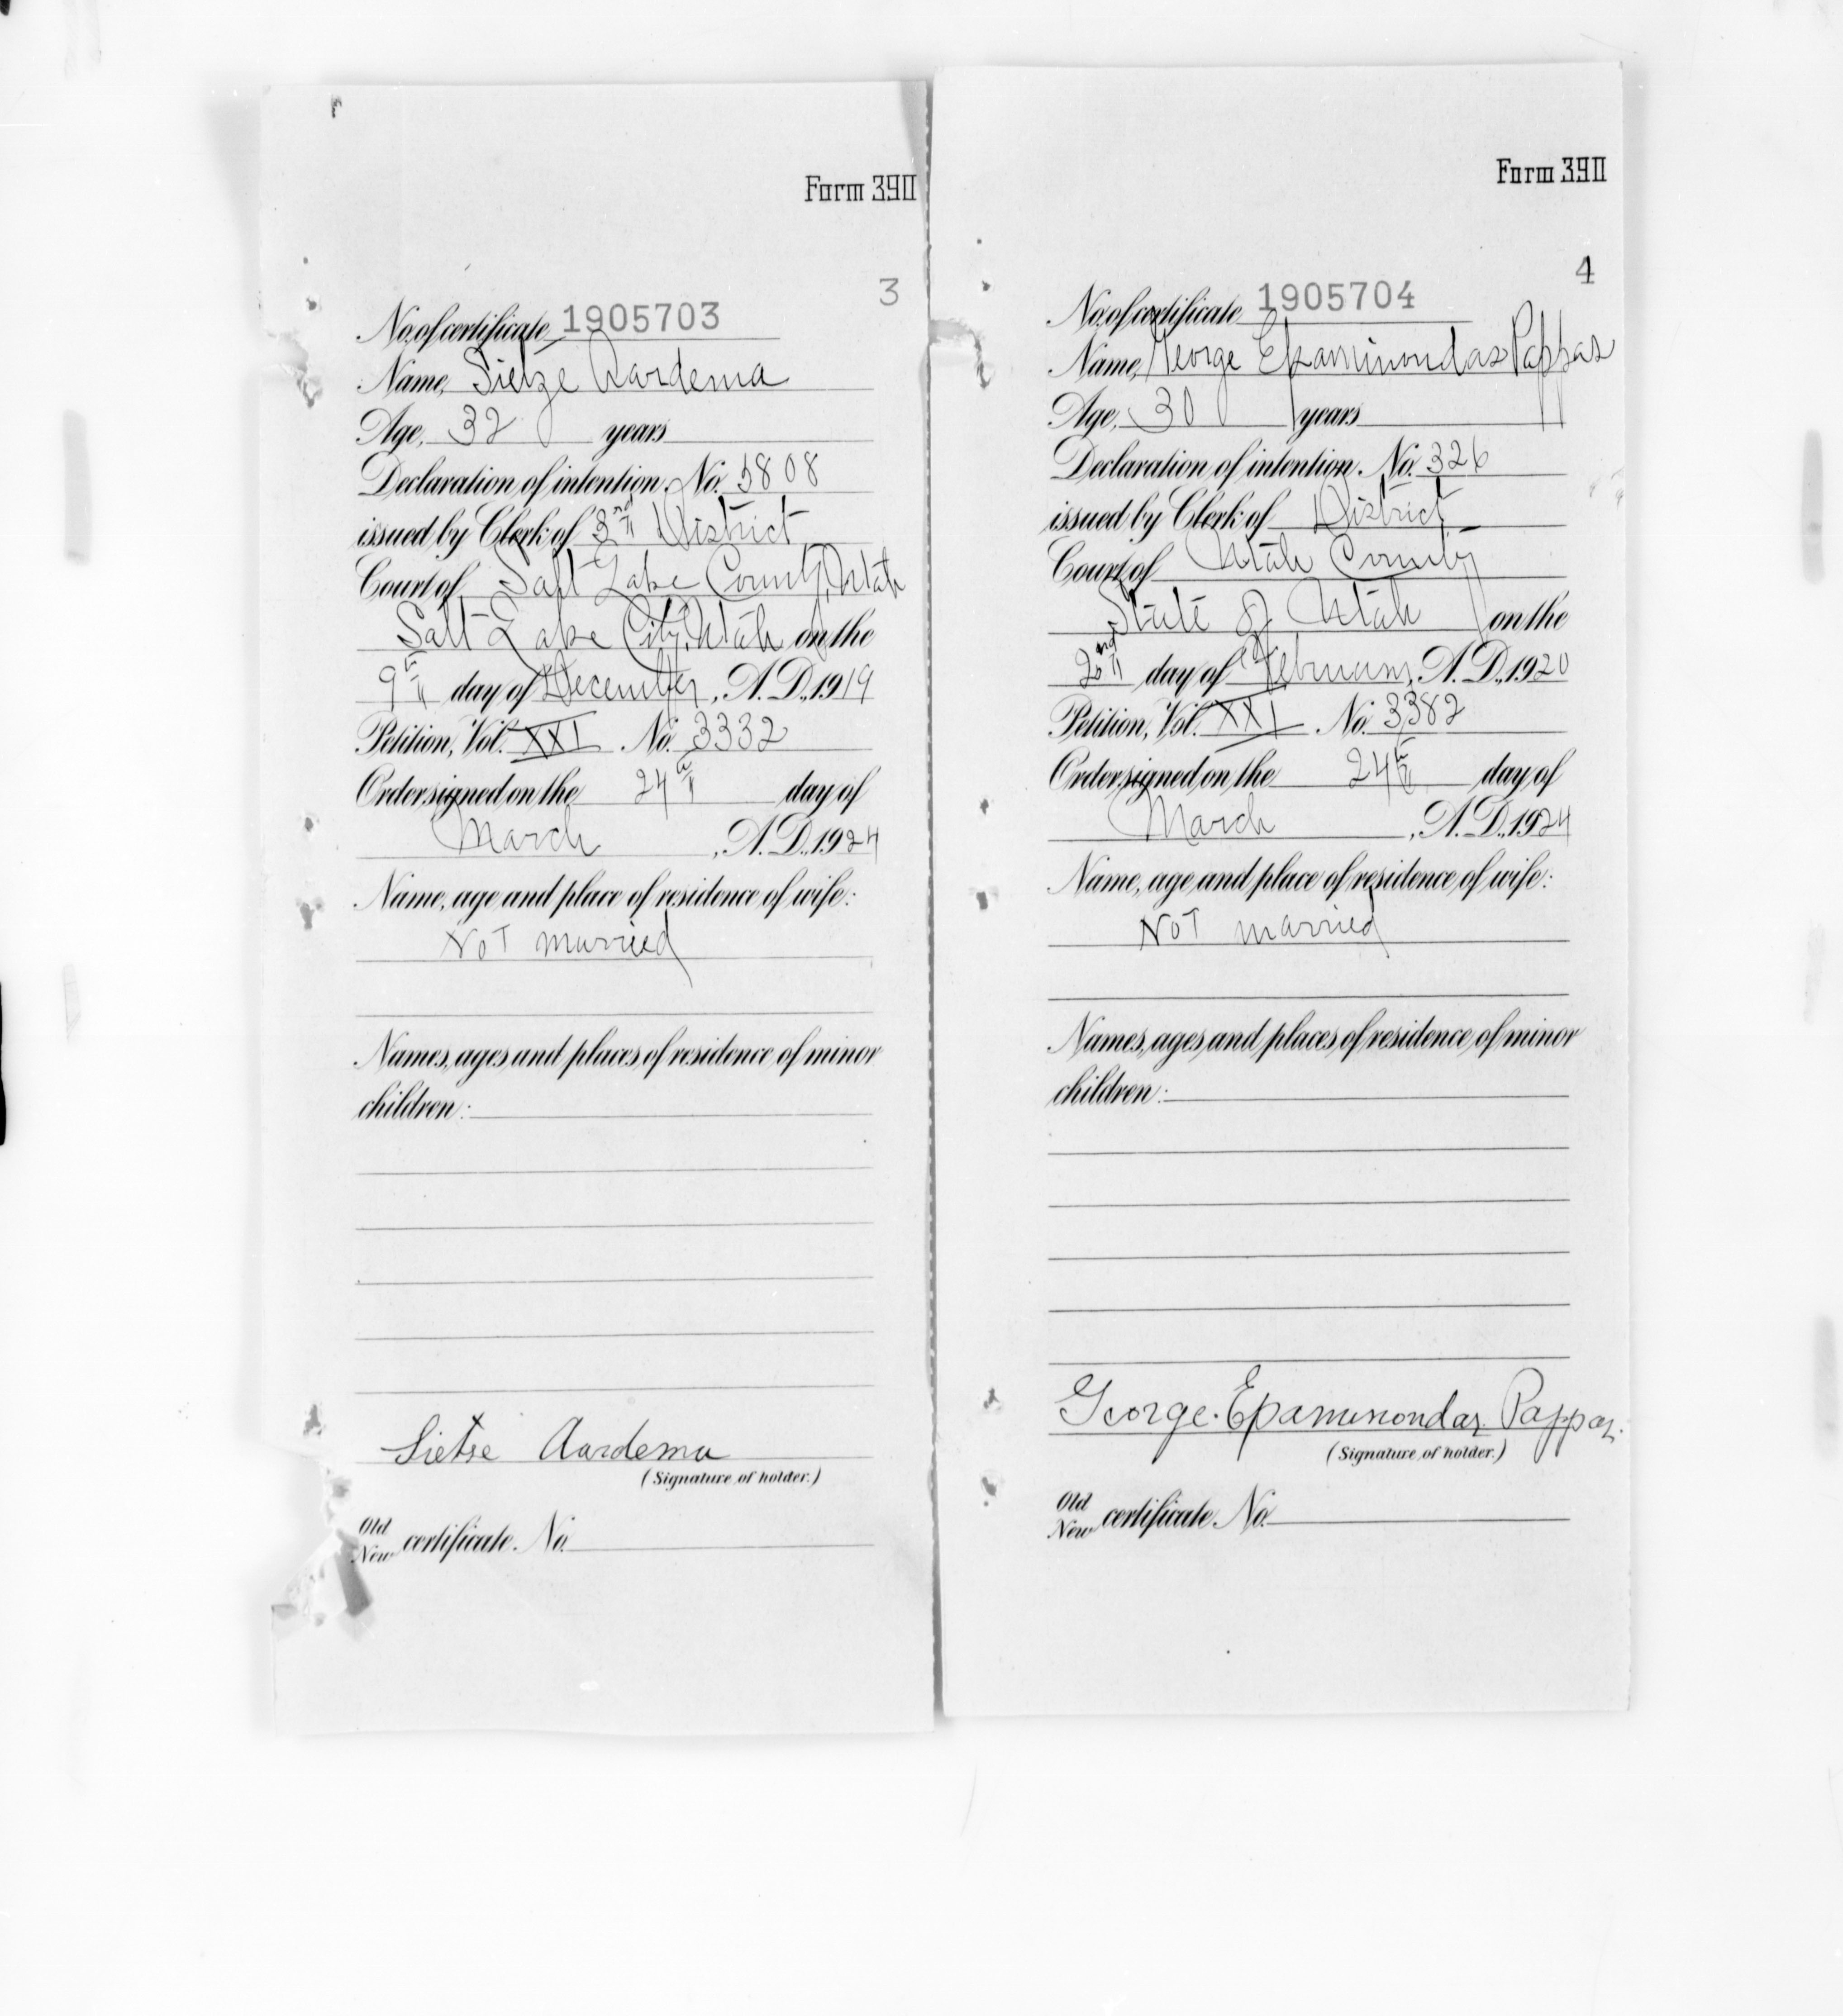 Form 390
3
No. of certificate 1905703
Name, Sietze Aardema
Age, 32 years
Declaration of intention, No. 5808
issued by Clerk of 3rd District
Court of Salt Lake County, Utah
Salt Lake City, Utah on the
9th day of December, A.D., 1919
Petition, Vol. XXI No. 3332
Order signed on the 24th day of
March, A.D., 1924
Name, age and place of residence of wife:
Not married
Names, ages and places of residence of minor
children:
Sietse Aardema
(Signature of holder.)
Old
New certificate No.
Form 390
4
No. of certificate 1905704
Name, George Epaminondas Pappas
Age, 30 years
Declaration of intention, No. 326
issued by Clerk of District
Court of Utah County
State of Utah on the
2nd day of February, A.D., 1920
Petition, Vol. XXI No. 3382
Order signed on the 24th day of
March, A.D., 1924
Name, age and place of residence of wife:
Not married
Names, ages and places of residence of minor
children:
George. Epaminondas Pappas.
(Signature of holder.)
Old
New certificate No.